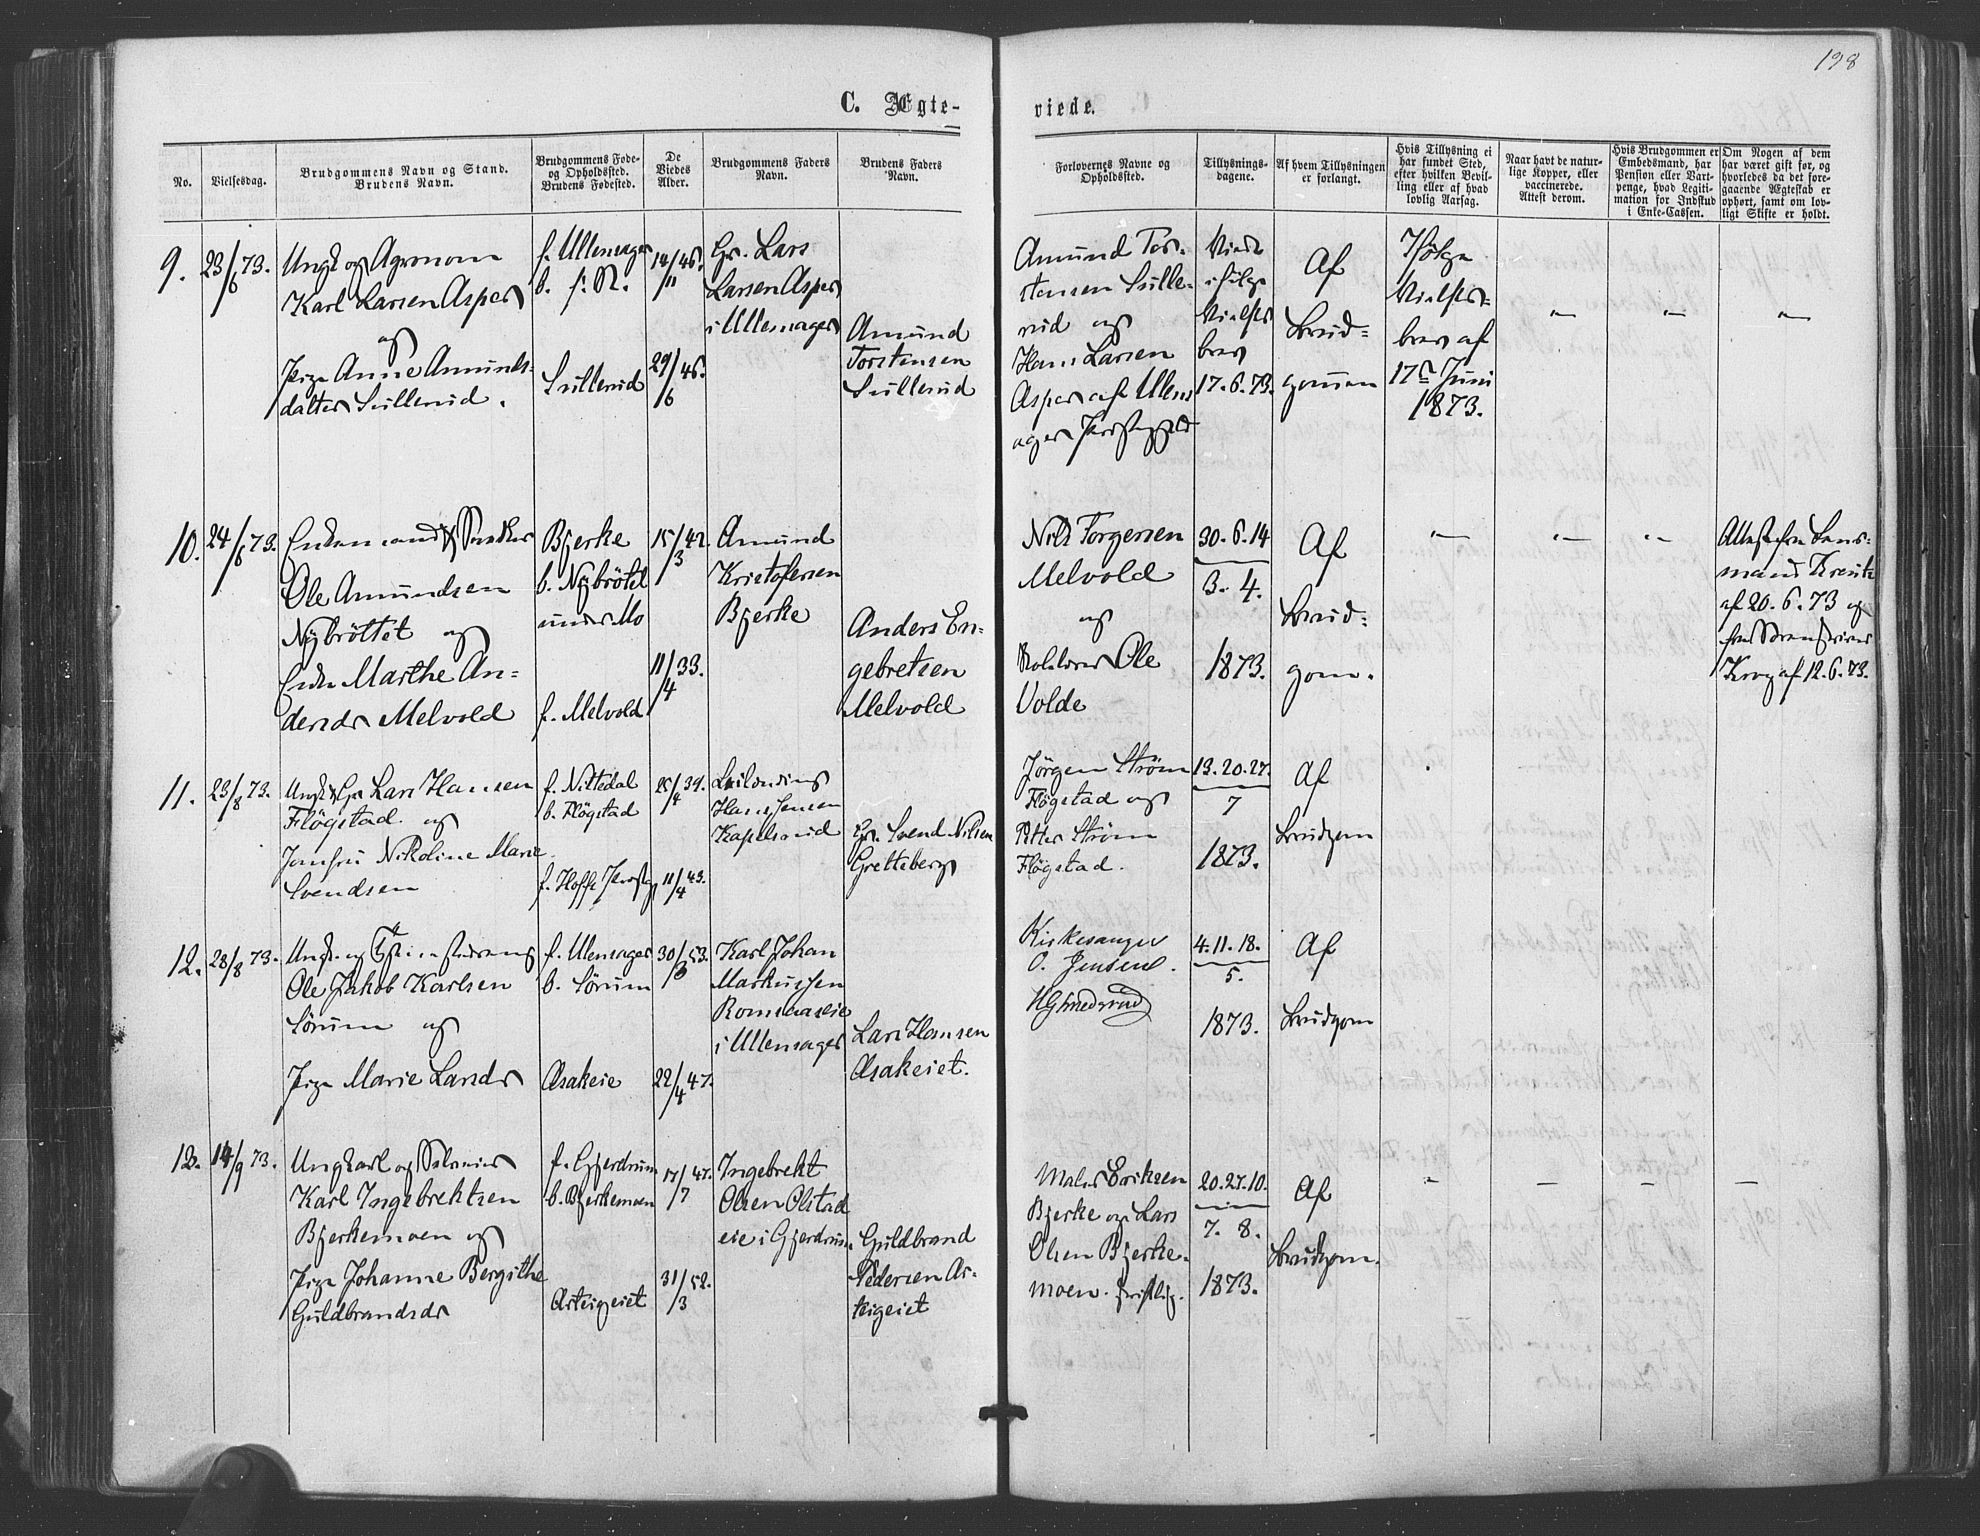 198
C. Ægte-
viede.
No.
Vielsesdag.
Brudgommens Navn og Stand.
Brudens Navn.
Brudgommens Føde-
og Opholdssted.
Brudens Fødested.
De
Viedes
Alder.
Brudgommens Faders
Navn.
Brudens Faders
Navn.
Forlovernes Navne og
Opholdssted.
Tillysnings-
dagene.
Af hvem Tillysningen
er forlangt.
Hvis Tillysning ei
har fundet Sted,
efter hvilken Bevil-
ling eller af hvad
lovlig Aarsag.
Naar havt de natur-
lige Kopper, eller
vaccinerede.
Attest derom.
Hvis Brudgommen er
Embedsmand, har
Pension eller Vart-
penge, hvad Legiti-
mation for Indskud
i Enke-Cassen.
Om Nogen af dem
har været gift før, og
hvorledes da det fore-
gaaende Ægteskab er
ophørt, samt om lov-
ligt Skifte er holdt.
9.
23/6 73.
Ungk og Agronom
Karl Larsen Asper
og
Pige Anne Amunds-
datter Sullerud.
f. Ullensager
b. f: N.
Sullerud
14/11 46.
29/6 46.
Gr. Lars
Larsen Asper
i Ullensager
Amund
Torstensen
Sullerud
Amund Tor-
stensen Sulle-
rud og
Hans Larsen
Asper af Ullens
ager
Viede
ifölge
Vielses
brev
17.6.73.
Af
Brud-
gommen
Ifölge
Vielses-
brev af
17de Juni
1873.
10.
24/6 73.
Enkemand
Ole Amundsen
Nybröttet og
Enke Marthe An-
dersdr Melvold
Bjerke
b. Nybrötet
under Mo
f. Melvold
15/3 42.
11/4 33.
Amund
Kristofersen
Bjerke
Anders En-
gebretsen
Melvold
Nils Torgersen
Melvold
og
Ole
Volde
30.6.14
3. 4.
1873.
Af
Brud-
gom.
Attest fra Lens-
mand
af 20.6.73 og
fra
Krog af 12.6.73.
11.
23/8 73.
Ungk Gr Lars Hansen
Flögstad. og
Jomfru Nikoline Marie
Svendsen
f. Nittedal
b. Flögstad
f. Hoff
25/4 39.
11/4 43.
Hans Jensen
Kapelsrud
Gr. Svend Nilsen
Gretteberg
Jörgen Ström
Flögstad og
Petter Ström
Flögstad.
13.20.27.
7
1873.
Af
Brudgom
12.
28/8 73.
Ungk. og
Ole Jakob Karlsen
Sörum og
Pige Marie Larsdr
f. Ullensager
b. Sörum
Asakeie
30/3 53.
22/4 47.
Karl Johan
Markussen
i Ullensager
Lars Hansen
Asakeiet.
Kirkesanger
O. Jensen.
4.11.18.
5.
1873.
Af
Brudgom
13.
14/9 73.
Ungkarl og
Karl Ingebrektsen
Bjerkemoen og
Pige Johanne Bergithe
Guldbrandsdr
f. Gjerdrum
b. Bjerkemoen
Asteigeiet
17/7 47.
31/3 52.
Ingebrekt
Olsen Olstad
eie i Gjerdrum
Guldbrand
Pedersen As-
teigeiet
Eriksen
Bjerke og Lars
Olsen Bjerke-
moen.
20.27.10.
7. 8.
1873.
Af
Brudgom.